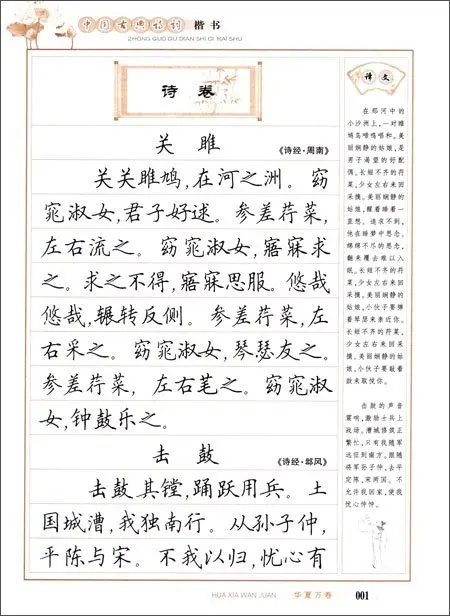 中国古典诗词 楷书
ZHONG GUO GU DIAN SHI CI KAI SHU
诗 卷
关 雎 《诗经·周南》
关关雎鸠,在河之洲。窈
窕淑女,君子好逑。参差荇菜,
左右流之。窈窕淑女,寤寐求
之。求之不得,寤寐思服。悠哉
悠哉,辗转反侧。参差荇菜,左
右采之。窈窕淑女,琴瑟友之。
参差荇菜,左右芼之。窈窕淑
女,钟鼓乐之。
击 鼓 《诗经·邶风》
击鼓其镗,踊跃用兵。土
国城漕,我独南行。从孙子仲,
平陈与宋。不我以归,忧心有
译 文
在那河中的
小沙洲上,一对雎
鸠鸟啼鸣唱和。美
丽娴静的姑娘,是
男子渴望的好配
偶。长短不齐的荇
菜,少女左右来回
采摘。美丽娴静的
姑娘,醒着睡着一
直想。追求不到,
他在睡梦中思念。
绵绵不尽的思念,
翻来覆去难以入
眠。长短不齐的荇
菜,少女左右来回
采摘。美丽娴静的
姑娘,小伙子要弹
着琴瑟来亲近你。
长短不齐的荇菜,
少女左右来回采
摘。美丽娴静的姑
娘,小伙子要敲着
鼓来取悦你。
击鼓的声音
震响,激励士兵上
战场。漕城修筑正
繁忙,只有我随军
远征到南方。跟随
将军孙子仲,去平
定陈、宋两国。不
允许我回家,使我
忧心忡忡。
HUA XIA WAN JUAN 华夏万卷 001